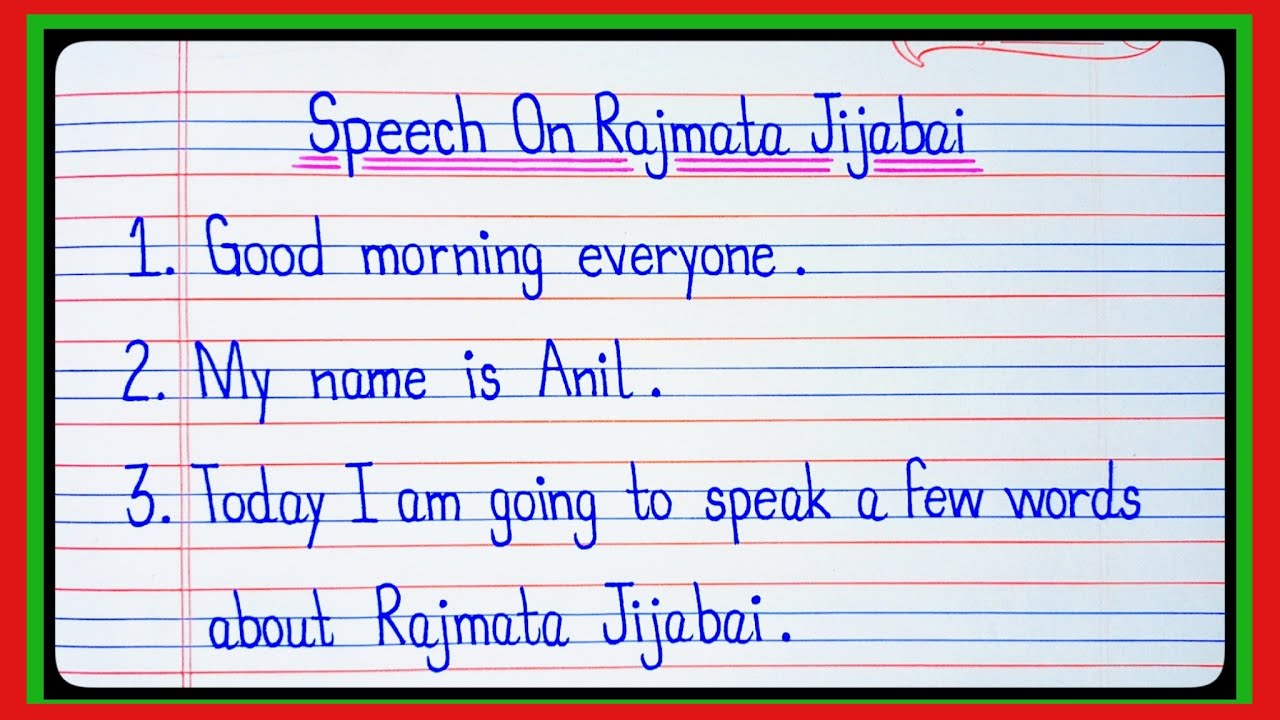 Speech On Rajmata Jijabai
1. Good morning everyone.
2. My name is Anil.
3. Today I am going to speak a few words
about Rajmata Jijabai.